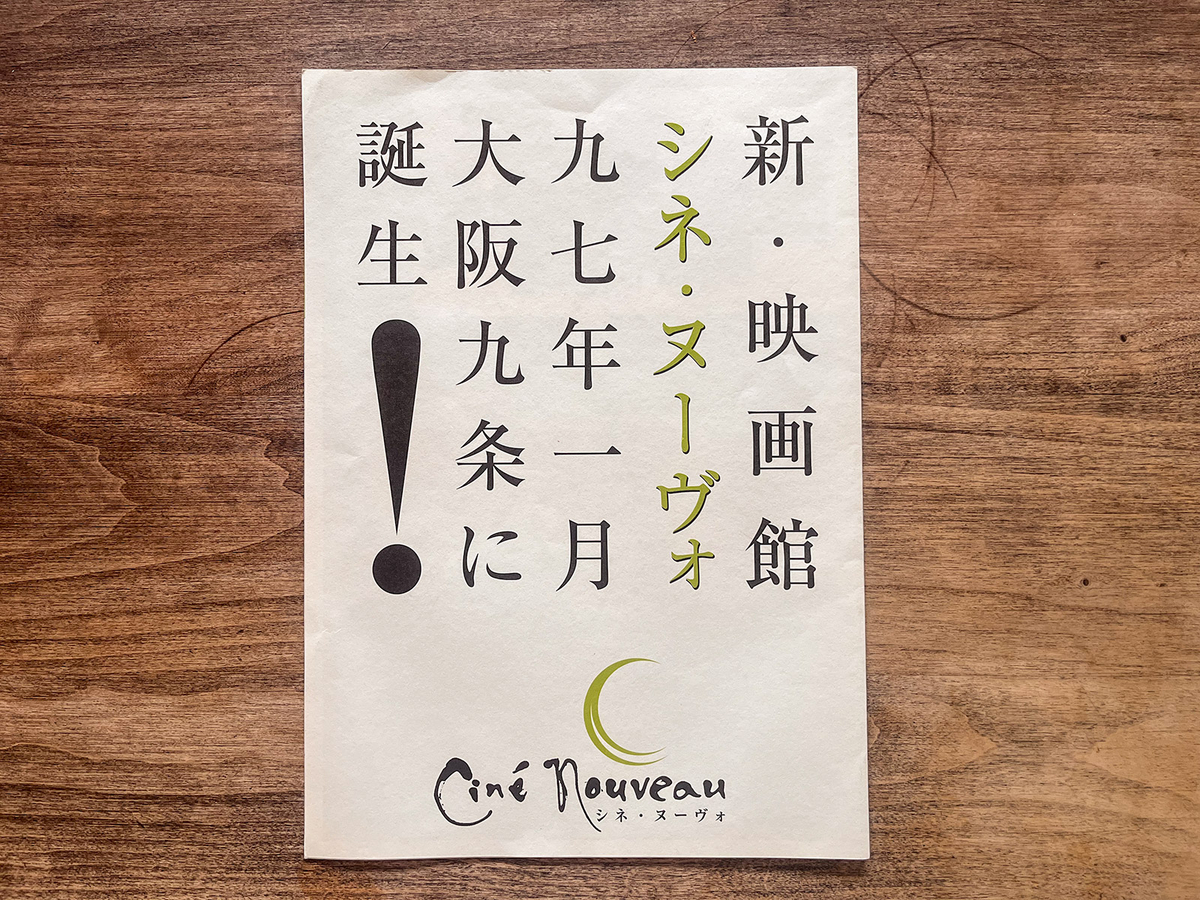 新・映画館
シネ・ヌーヴォ
九七年一月
大阪九条に
誕生！
Ciné Nouveau
シネ・ヌーヴォ